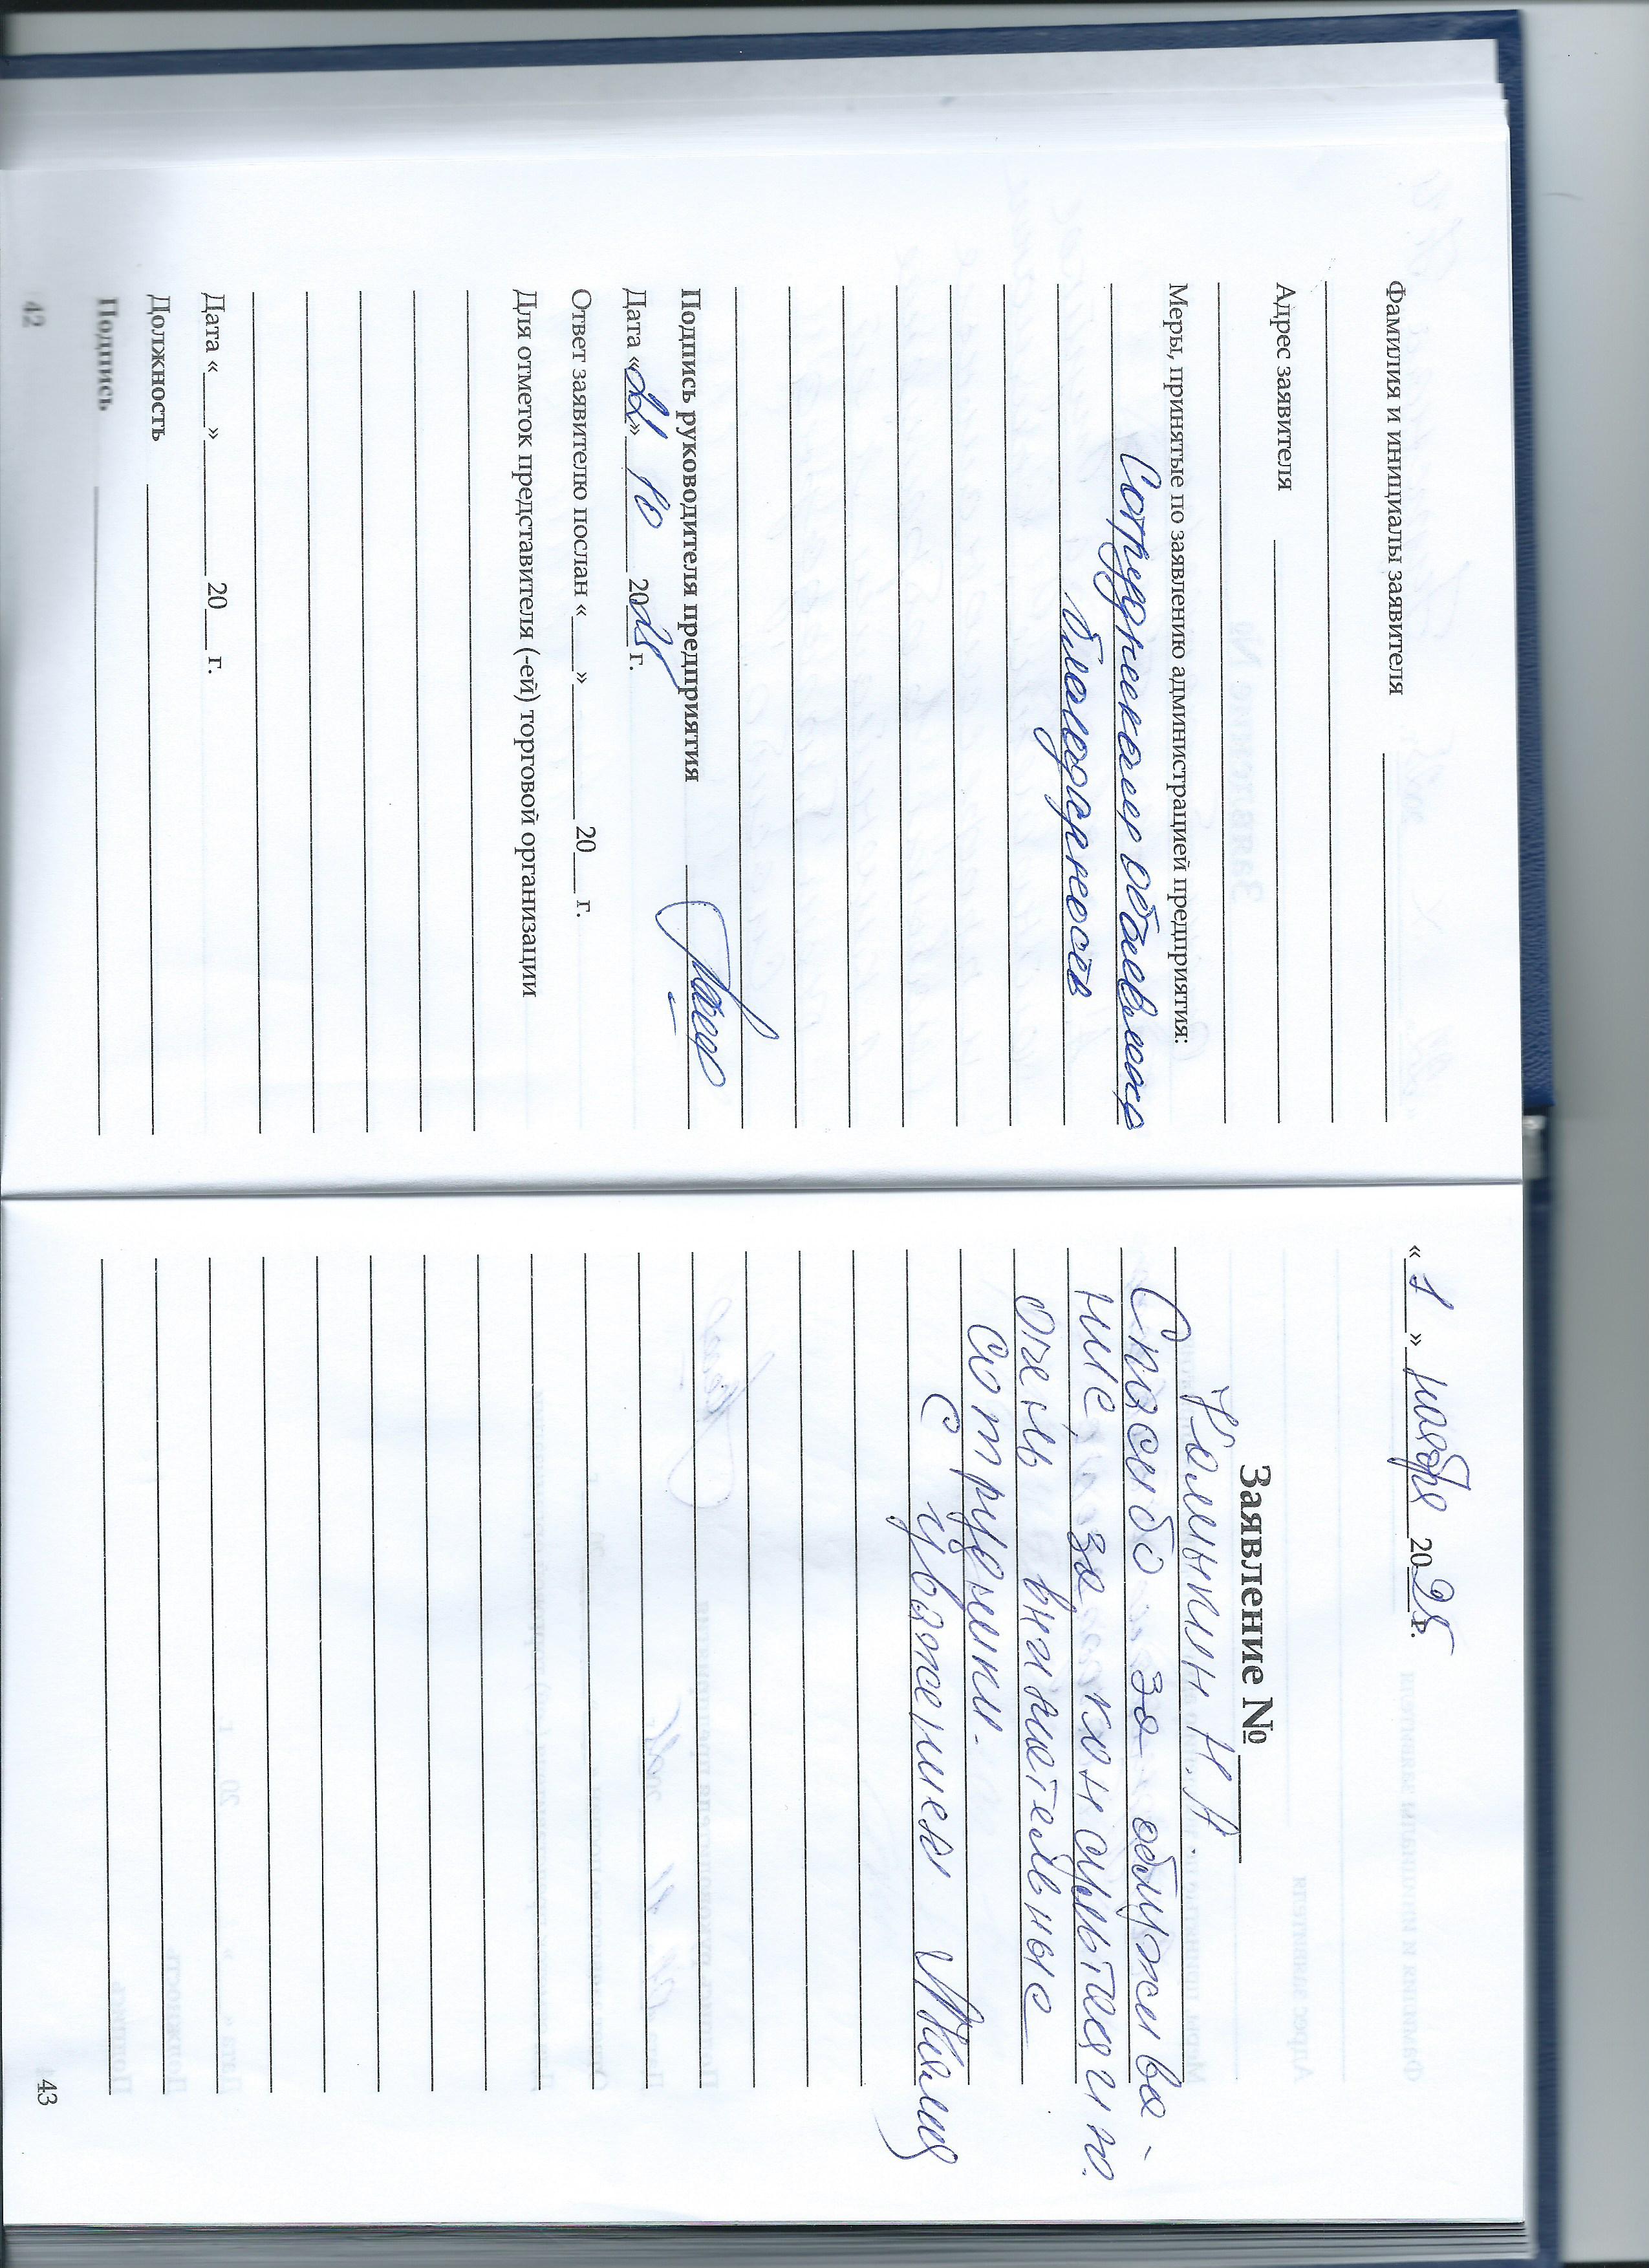 Фамилия и инициалы заявителя
Адрес заявителя
Меры, принятые по заявлению администрацией предприятия:
Сотрудникам объявлена
благодарность
Подпись руководителя предприятия
Дата «22» 10 2025 г.
Ответ заявителю послан «___»________ 20___ г.
Для отметок представителя (-ей) торговой организации
Дата «____»________ 20___ г.
Должность
Подпись
42
«1» ноября 2025 г.
Заявление №
Калинкин Н.А.
Спасибо за обслужива-
ние, за консультацию.
Очень внимательные
сотрудники.
С уважением
43